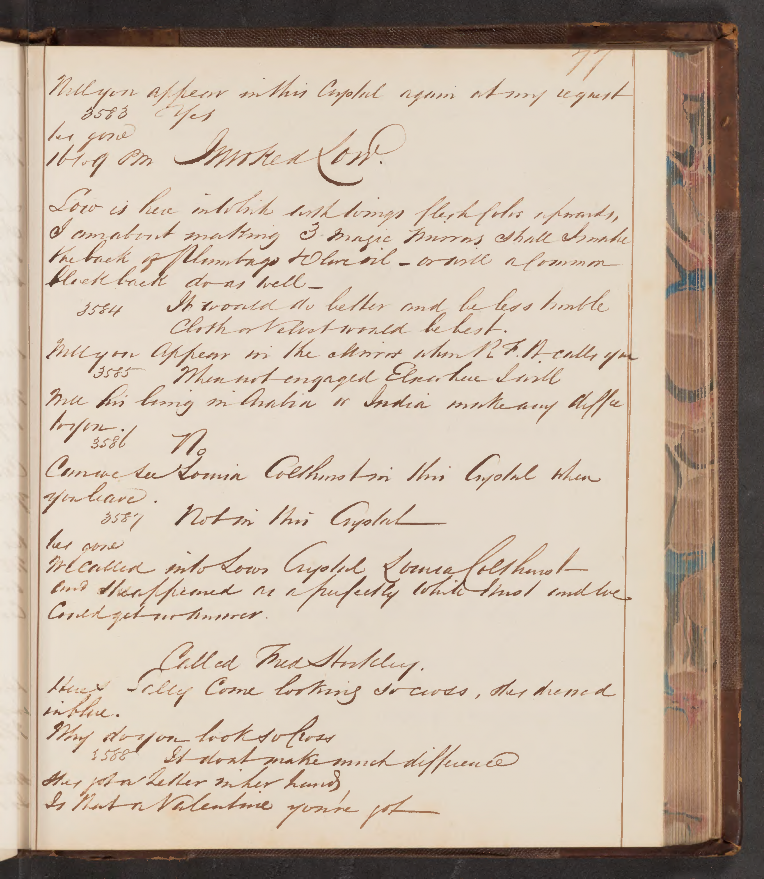 77
Will you appear in this Crystal again at my request
3583 Yes
hes gone
16 to 9 Pm Invoked Low.
Low is here
I am about making 3 Magic Mirrors, shall I make
the back of Plumbago & Olive oil - or will a Common
black back do as well -
3584 It would do better and be less trouble
Cloth or Velvet would be best.
Will you Appear in the Mirror when R F. B calls you
3585 When not engaged Elsewhere I will
Will his being in Arabia or India make any diffce
to you.
3586 No
Can we see Louisa Colthurst in this Crystal when
you leave.
3587 Not in this Crystal
hes gone
We Called into Lows Crystal Louisa Colthurst
and She appeared as a perfectly White Mist and we
Could get no Answer.
Called Fred Hockley.
Heres Sally Come looking so cross, she dressed
in blue.
Why do you look so Cross
3588 It dont make much difference
shes got a Letter in her hand,
Is that a Valentine you've got